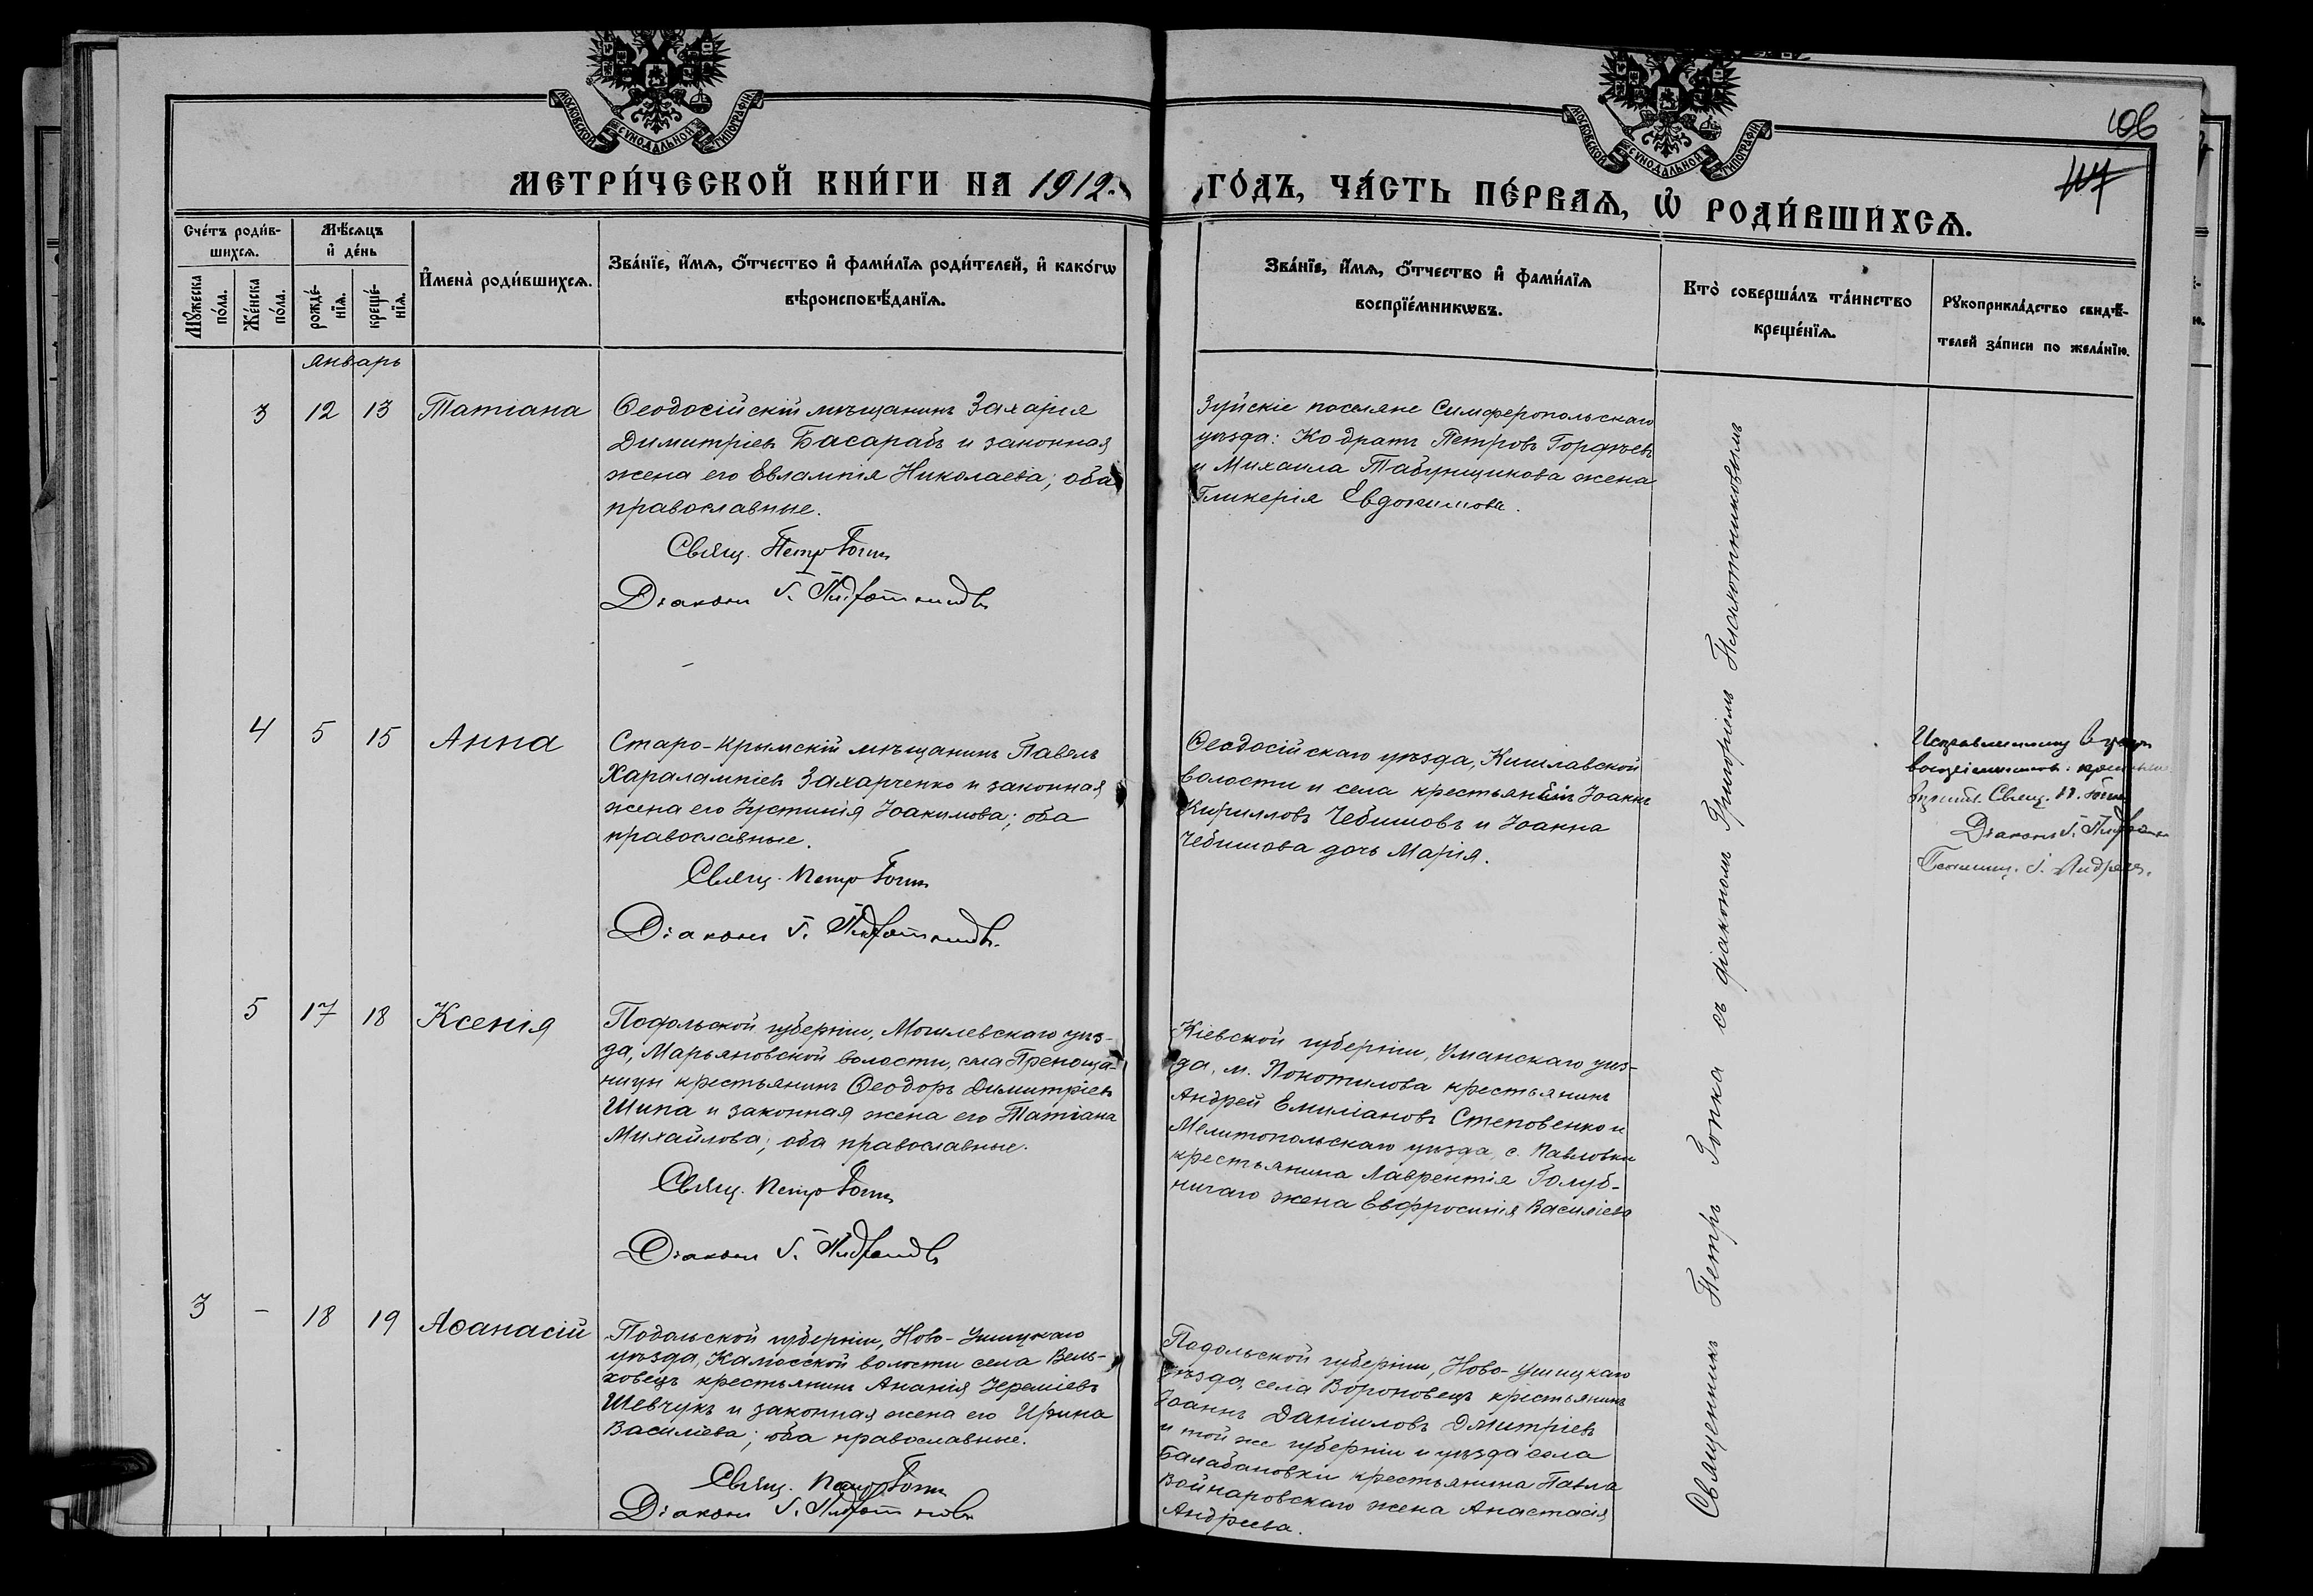 МОСКОВСКОЙ СУНОДАЛЬНОЙ ТИПОГРАФІИ
МОСКОВСКОЙ СУНОДАЛЬНОЙ ТИПОГРАФІИ
106
117
МЕТРИ́ЧЕСКОЙ КНИ́ГИ НА 1912
ГО́ДЪ, ЧА́СТЬ ПЕ́РВАѦ, Ѡ҆ РОДИ́ВШИХСѦ.
Сче́тъ роди́в-
шихсѧ.
Мꙋжеска по́ла.
Же́нска по́ла.
Мѣ́сѧцъ
и҆ де́нь
рожде́-
нїѧ.
креще́-
нїѧ.
И҆мена̀ роди́вшихсѧ.
Зва́нїе, и҆́мѧ, ѻ҆́тчество и҆ фами́лїѧ роди́телей, и҆ како́гѡ
вѣроисповѣ́данїѧ.
Зва́нїе, и҆́мѧ, ѻ҆́тчество и҆ фами́лїѧ
воспрїе́мникѡвъ.
Кто̀ соверша́лъ та́инство
креще́нїѧ.
Рꙋкоприкла́дство свидѣ́-
телей за́писи по жела́нїю.
январь
3 12 13 Татіана
Ѳеодосійскій мѣщанинъ Захарія
Димитріевъ Басарабъ и законная
жена его Евлампія Николаева; оба
православные.
Свящ. Петръ
Діаконъ Г.
Зуйскіе поселяне Симферопольскаго
уѣзда: Кодратъ Петровъ Горфѣевъ
и Михаила Табунщикова жена
Гликерія Евдокимова.
4 5 15 Анна
Старо-Крымскій мѣщанинъ Павелъ
Харалампіевъ Захарченко и законная
жена его Іустинія Іоакимова; оба
православные.
Свящ. Петръ
Діаконъ Г.
Ѳеодосійскаго уѣзда, Кишлавской
волости и села крестьянинъ Іоаннъ
Кирилловъ Чебишовъ и Іоанна
Чебишова дочь Марія.
Исправленному
Свящ. П.
Діаконъ Г.
Псаломщ. Андреев.
5 17 18 Ксенія
Подольской губерніи, Могилевскаго уѣз-
да, Марьяновской волости, села
крестьянинъ Ѳеодоръ Димитріевъ
Шипа и законная жена его Татіана
Михайлова; оба православные.
Свящ. Петръ
Діаконъ Г.
Кіевской губерніи, Уманскаго уѣз-
да, м. Покотилова крестьянинъ
Андрей Емиліановъ Степовенко и
Мелитопольскаго уѣзда, с. Павловки
крестьянина Лаврентія Голуб-
ничаго жена Евфросинія Василіева
3 - 18 19 Аѳанасій
Подольской губерніи, Ново-Ушицкаго
уѣзда, волости села Вель-
ховецъ крестьянинъ Ананія Іереміевъ
Шевчукъ и законная жена его Ирина
Василіева; оба православные.
Свящ. Петръ
Діаконъ Г.
Подольской губерніи, Ново-Ушицкаго
уѣзда, села Вороновецъ крестьянинъ
Іоаннъ Даніиловъ Дмитріевъ
и той же губерніи и уѣзда села
Балабановки крестьянина Павла
Войнаровскаго жена Анастасія
Андреева.
Священникъ Петръ съ діакономъ Григоріемъ